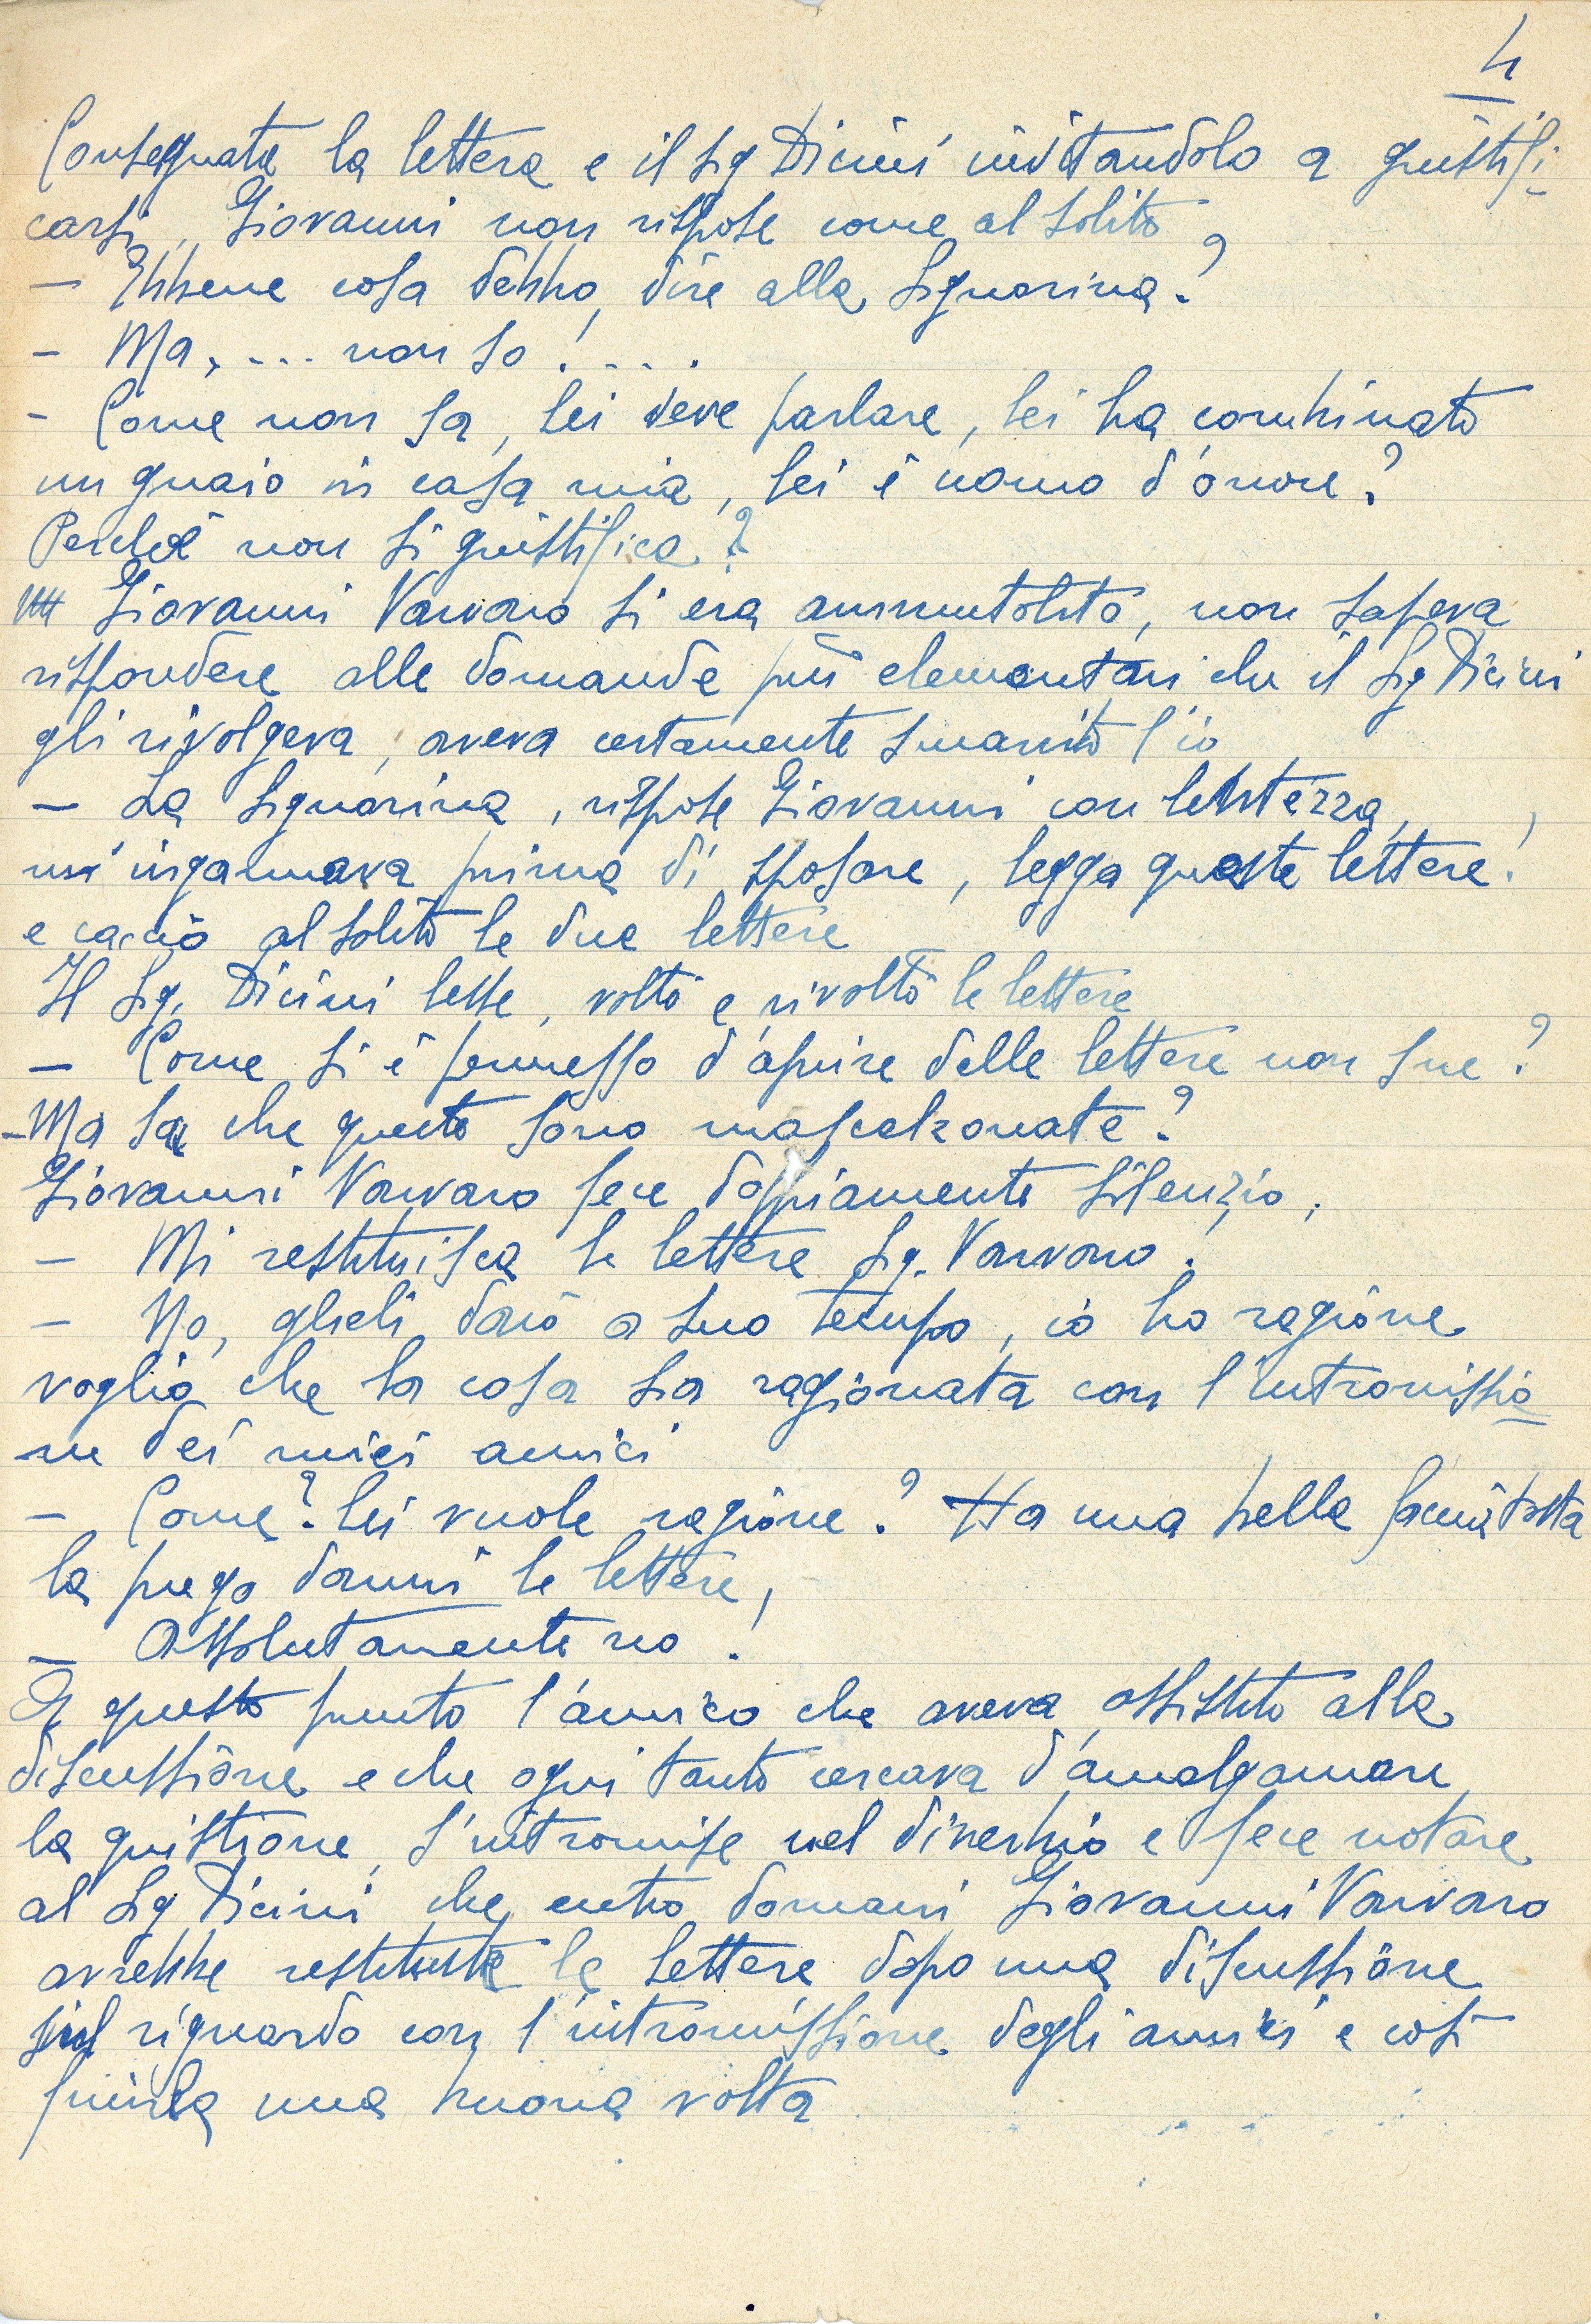 4
Consegnata la lettera e il Sig Dicini invitandolo a giustifi-
carsi, Giovanni non rispose come al solito
— Ebbene cosa debbo dire alla Signorina?
— Ma, ... non so! ....
- Come non sa, lei deve parlare, lei ha combinato
un guaio in casa mia, lei è uomo d'onore?
Perchè non si giustifica?
Giovanni Varvaro si era ammutolito, non sapeva
rispondere alle domande più elementari che il Sig Dicini
gli rivolgeva, aveva certamente smarrito l'io
— La Signorina, rispose Giovanni con lentezza,
m'ingannava prima di sposare, legga queste lettere!
e cacciò al solito le due lettere
Il Sig. Dicini lesse, voltò e rivoltò le lettere
— Come si è permesso d'aprire delle lettere non sue?
- Ma sa che queste sono mascalzonate?
Giovanni Varvaro fece doppiamente silenzio,
— Mi restituisca le lettere Sig. Varvaro!
— No, glieli darò a suo tempo, io ho ragione
voglio che la cosa sia ragionata con l'intromissio
ne dei miei amici
— Come? lei vuole ragione? Ha una bella faccia tosta
la prego darmi le lettere,
— Assolutamente no!
A questo punto l'amico che aveva assistito alla
discussione e che ogni tanto cercava d'amalgamare
la quistione, s'intromise nel diverbio e fece notare
al Sig Dicini che entro domani Giovanni Varvaro
avrebbe restituite le lettere dopo una discussione
sul riguardo con l'intromissione degli amici e così
finirla una buona volta